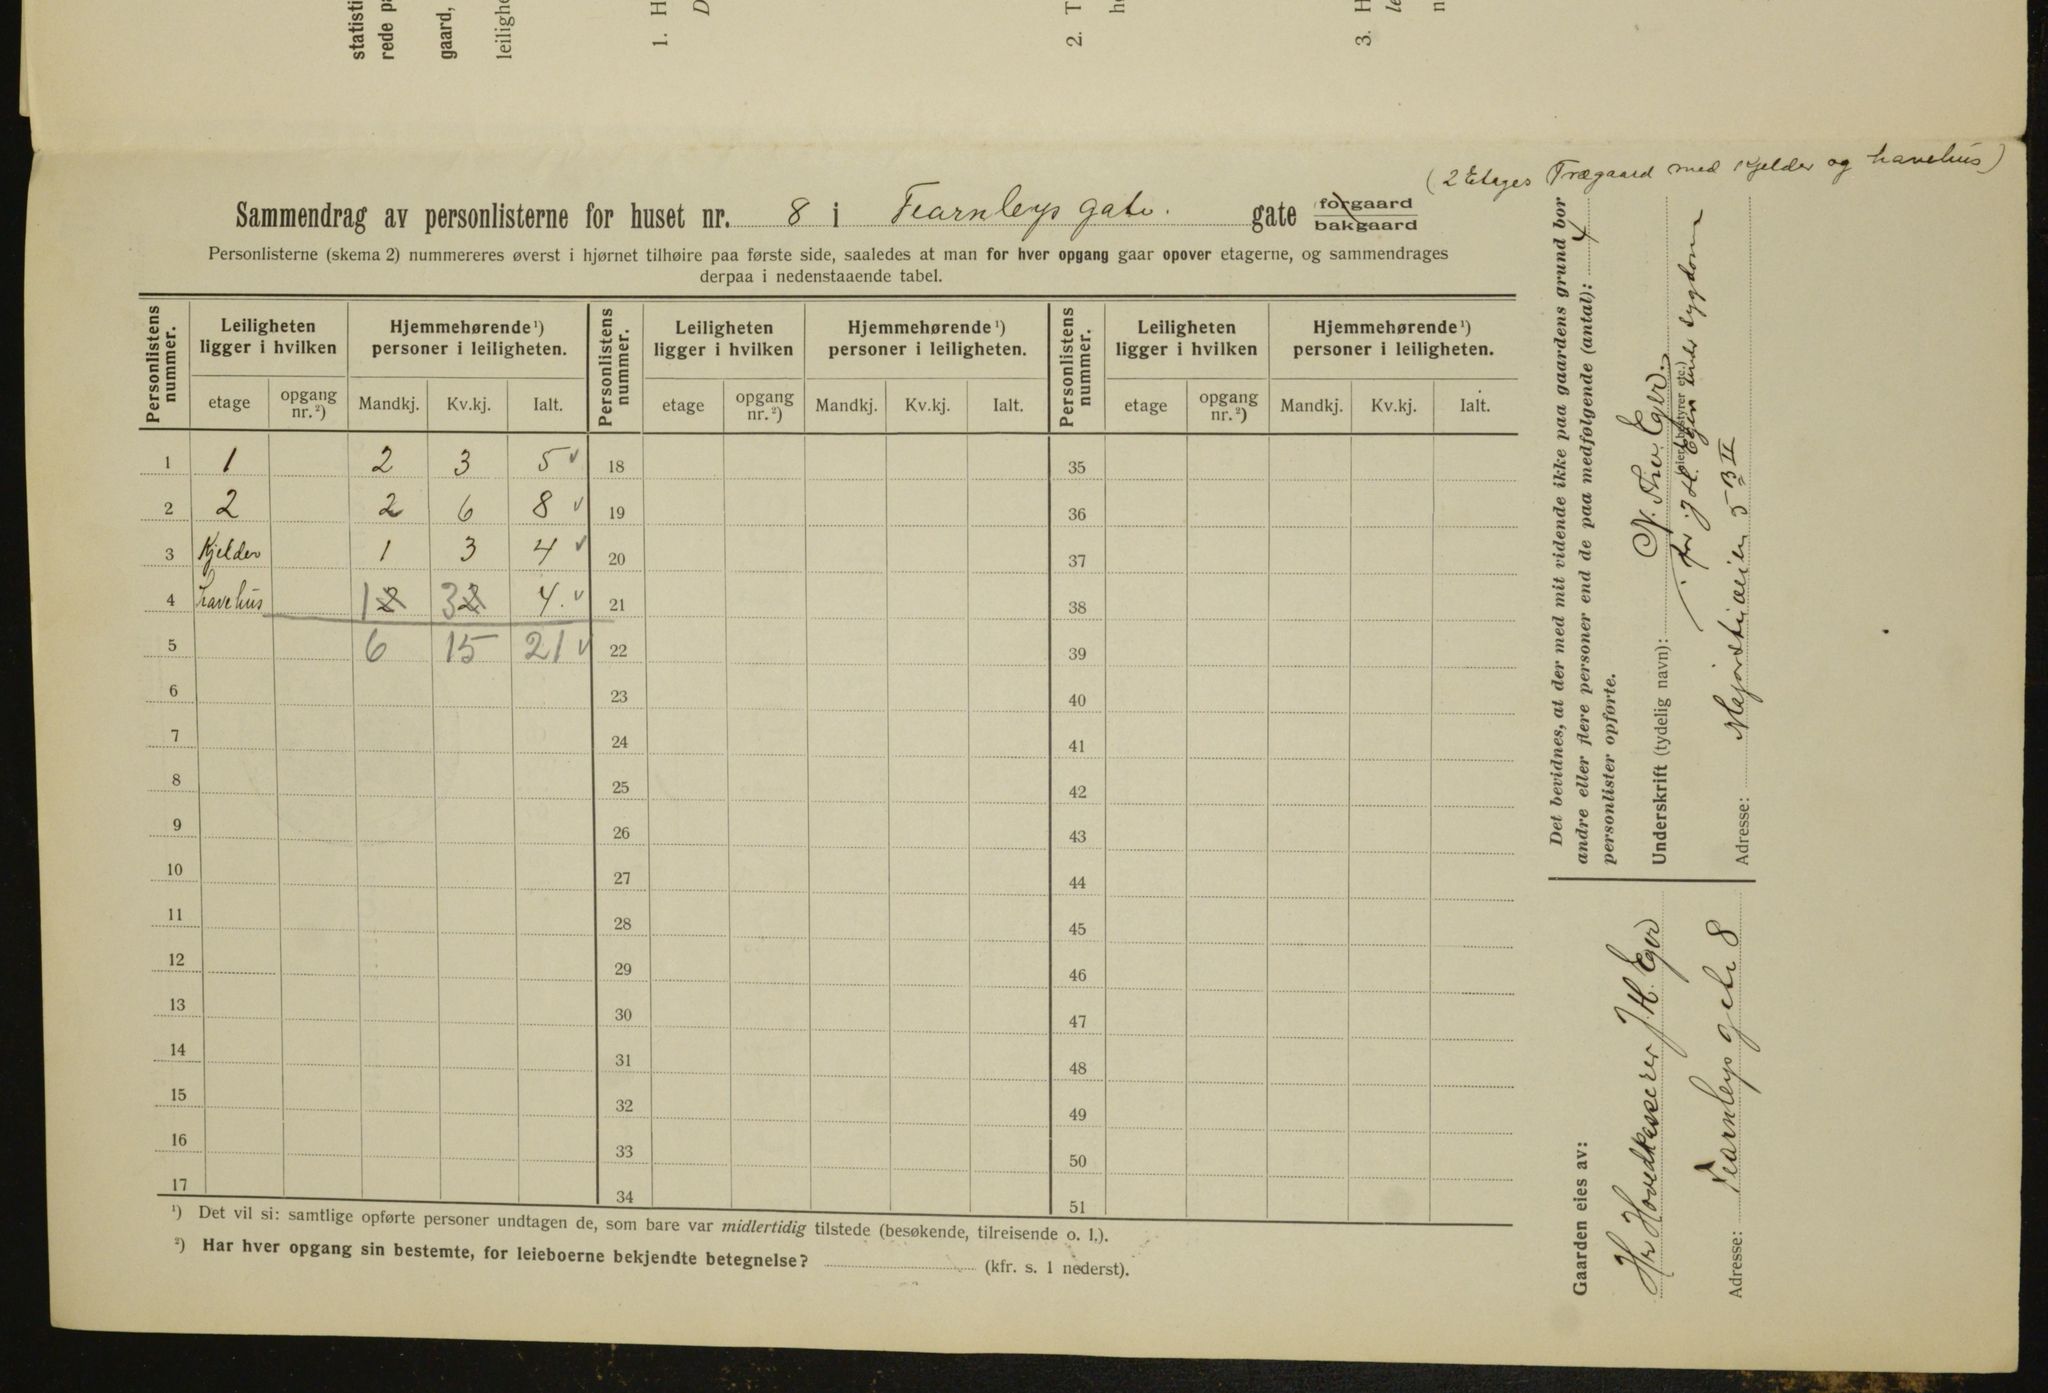 statisti
rede pa
gaard,
leilighe
1. H
D
2. T
h
3. H
le
n
(2 Etages Trægaard med Kjelder og havehus)
Sammendrag av personlisterne for huset nr. 8 i Fearnleys gate. gate forgaard
bakgaard
Personlisterne (skema 2) nummereres øverst i hjørnet tilhøire paa første side, saaledes at man for hver opgang gaar opover etagerne, og sammendrages
derpaa i nedenstaaende tabel.
Personlistens nummer. Leiligheten ligger i hvilken Hjemmehørende ¹) personer i leiligheten. Personlistens nummer. Leiligheten ligger i hvilken Hjemmehørende ¹) personer i leiligheten. Personlistens nummer. Leiligheten ligger i hvilken Hjemmehørende ¹) personer i leiligheten.
etage opgang nr. ²) Mandkj. Kv.kj. Ialt. etage opgang nr. ²) Mandkj. Kv.kj. Ialt. etage opgang nr. ²) Mandkj. Kv.kj. Ialt.
1 1 2 3 5 18 35
2 2 2 6 8 19 36
3 Kjelder 1 3 4 20 37
4 havehus 1 2 3 2 4. 21 38
5 6 15 21 22 39
6 23 40
7 24 41
8 25 42
9 26 43
10 27 44
11 28 45
12 29 46
13 30 47
14 31 48
15 32 49
16 33 50
17 34 51
¹) Det vil si: samtlige opførte personer undtagen de, som bare var midlertidig tilstede (besøkende, tilreisende o. l.).
²) Har hver opgang sin bestemte, for leieboerne bekjendte betegnelse? (kfr. s. 1 nederst).
Det bevidnes, at der med mit vidende ikke paa gaardens grund bor
andre eller flere personer end de paa medfølgende (antal): 4
personlister opførte.
Underskrift (tydelig navn): N. Thv. Eger.
(eier, bestyrer etc.)
for J. H. Eger under sygdom
Adresse: Majorstuveien 5 B II
Gaarden eies av:
Hr Hovedkasserer J. H. Eger
Adresse: Fearnleys gate 8